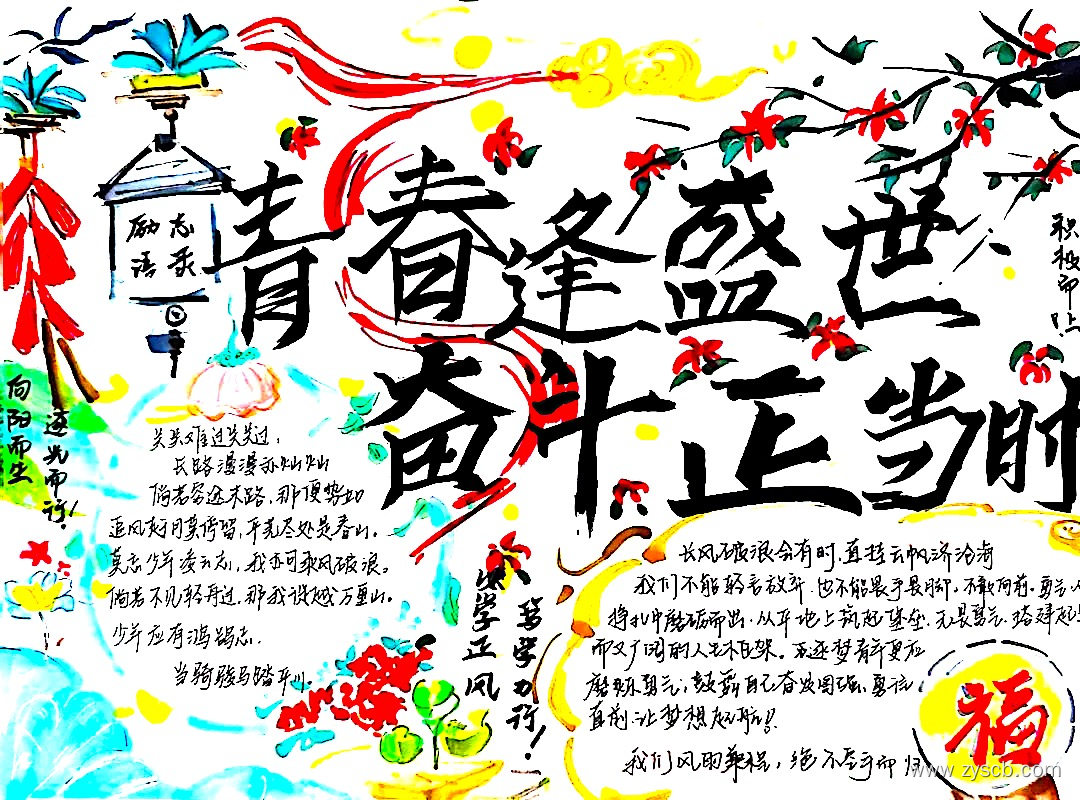 励志
语录
青春逢盛世
奋斗正当时
积极
向阳而生
逐光而行!
关关难过关关过,
长路漫漫亦灿灿
倘若穷途末路,那便势如
追风好月莫停留,平芜尽处是春山。
莫忘少年凌云志,我亦可乘风破浪。
倘若不见轻舟过,那我说越万重山。
少年应有鸿鹄志,
当骑骏马踏平川。
学正风
笃学力行!
长风破浪会有时,直挂云帆济沧海
我们不能轻言放弃,也不能畏手畏脚,不敢向前。勇
挣扎中磨砺而出,从平地上筑起堡垒,无畏勇气,搭建起
而又广阔的人生框架。追逐梦者更应
磨炼勇气,鼓舞自己奋发图强,勇往
直前,让梦想起航!
我们风的兼程,绝不空手而归
福
www.zyscb.com